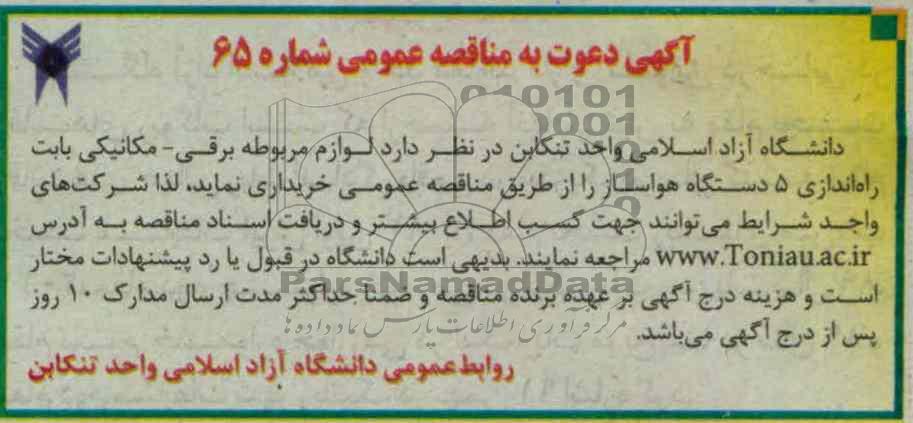 آگهی دعوت به مناقصه عمومی شماره ۶۵
دانشگاه آزاد اسلامی واحد تنکابن در نظر دارد لوازم مربوطه برقی- مکانیکی بابت
راه‌اندازی ۵ دستگاه هواساز را از طریق مناقصه عمومی خریداری نماید، لذا شرکت‌های
واجد شرایط می‌توانند جهت کسب اطلاع بیشتر و دریافت اسناد مناقصه به آدرس
www.Toniau.ac.ir مراجعه نمایند. بدیهی است دانشگاه در قبول یا رد پیشنهادات مختار
است و هزینه درج آگهی بر عهده برنده مناقصه و ضمناً حداکثر مدت ارسال مدارک ۱۰ روز
پس از درج آگهی می‌باشد.
روابط عمومی دانشگاه آزاد اسلامی واحد تنکابن
010101
0001
ParsNamadData
مرکز فرآوری اطلاعات پارس نماد داده ها